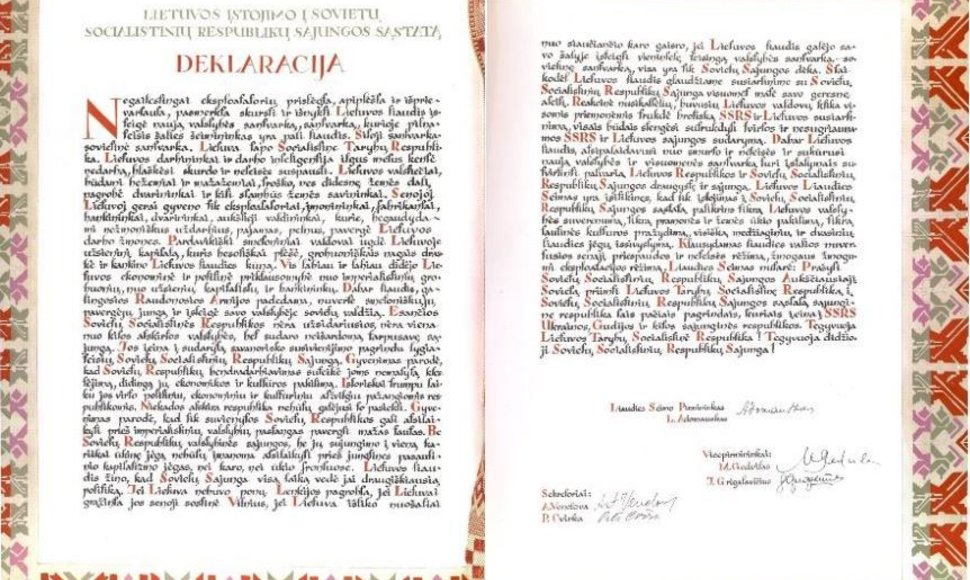 LIETUVOS ĮSTOJIMO Į SOVIETŲ
SOCIALISTINIŲ RESPUBLIKŲ SĄJUNGOS SĄSTATĄ
DEKLARACIJA
Negailestingai eksploatatorių prislėgta, apiplėšta ir išprie-
vartauta, pasmerkta skursti ir išnykti Lietuvos liaudis įs-
teigė naują valstybės santvarką, santvarką, kurioje pilna-
teisis šalies šeimininkas yra pati liaudis. Šitoji santvarka-
sovietinė santvarka. Lietuva tapo Socialistine Tarybų Respubli-
ka. Lietuvos darbininkai ir darbo inteligentija ilgus metus kentė
nedarbą, blaškėsi skurdo ir neteisės suspausti. Lietuvos valstiečiai,
būdami bežemiai ir mažažemiai, troško, nes didesnę žemės dalį
pagrobė dvarininkai ir kiti stambūs žemės savininkai. Senojoj
Lietuvoj gerai gyveno tik eksploatatoriai, pramonininkai, fabrikantai,
bankininkai, dvarininkai, aukštieji valdininkai, kurie, begaudyda-
mi nežmoniškus uždarbius, pajamas, pelnus, pavergė Lietuvos
darbo žmones. Pardavikiški smetoniniai valdovai ugdė Lietuvoje
užsieninį kapitalą, kuris besotiškai plėšė, grobuoniškais nagais dras-
kė ir kankino Lietuvos liaudies kūną. Vis labiau ir labiau didėjo Lie-
tuvos ekonominė ir politinė priklausomybė nuo imperialistinių gro-
buonių, nuo užsienių kapitalistų ir bankininkų. Dabar liaudis, ga-
lingosios Raudonosios Armijos padedama, nuvertė smetoniškųjų
pavergėjų jungą ir įsteigė savo valstybėje sovietų valdžią. Esančios
Sovietų Socialistinės Respublikos nėra užsidariusios, nėra viena
nuo kitos atskirtos valstybės, bet sudaro neišardomą tarpusavę są-
jungą. Jos įeina į sudarytą savanorišku susivienijimo pagrindu lygia-
teisių Sovietų Socialistinių Respublikų Sąjungą. Gyvenimas parodė,
kad Sovietų Respublikų bendradarbiavimas suteikė joms nematytą kles-
tėjimą, didingą jų ekonomikos ir kultūros pakilimą. Istoriškai trumpu lai-
ku jos virto politiniu, ekonominiu ir kultūriniu atžvilgiu pažangiomis res-
publikomis. Niekados atskira respublika nebūtų galėjusi to pasiekti. Gyve-
nimas parodė, kad tik suvienytos Sovietų Respublikos gali atsilai-
kyti prieš imperialistinių valstybių pastangas pavergti mažas tautas. Be
Sovietų Respublikų valstybinės sąjungos, be jų sujungimo į vieną ka-
rišką ūkinę jėgą nebūtų įmanoma atsilaikyti prieš jungtines pasauli-
nio kapitalizmo jėgas, nei karo, nei ūkio frontuose. Lietuvos liau-
dis žino, kad Sovietų Sąjunga visą laiką vedė jai draugiškiausią
politiką. Jei Lietuva nebuvo ponų Lenkijos pagrobta, jei Lietuvai
grąžinta jos senoji sostinė Vilnius, jei Lietuva išliko nuošaliai
nuo siaučiančio karo gaisro, jei Lietuvos liaudis galėjo sa-
vo šalyje įsteigti vienintelę teisingą valstybės santvarką - so-
vietinę santvarką, visa yra tik Sovietų Sąjungos dėka. Štai
kodėl Lietuvos liaudis glaudžiame susiartinime su Sovietų
Socialistinių Respublikų Sąjunga visuomet matė savo geresnę
ateitį. Reakcinė
buvusių Lietuvos valdovų klika vi-
somis priemonėmis trukdė brolišką SSRS ir Lietuvos susiarti-
nimą, visais būdais stengėsi sutrukdyti tvirtos ir nesugriauna-
mos SSRS ir Lietuvos sąjungos sudarymą. Dabar Lietuvos
liaudis, atsipalaidavusi nuo smurto ir neteisės ir sukūrusi
naują valstybės ir visuomenės santvarką turi įstatymais su-
tvirtinti patvarią Lietuvos Respublikos ir Sovietų Socialistinių
Respublikų Sąjungos draugystę ir sąjungą. Lietuvos Liaudies
Seimas yra įsitikinęs, kad tik įstojimas į Sovietų Socialistinių
Respublikų Sąjungos sąstatą, patikrins tikrą Lietuvos valsty-
bės suverenumą, tikrą pramonės ir žemės ūkio pakilimą, tikrą
tautinės kultūros pražydimą, visišką medžiaginių ir dvasinių
liaudies jėgų išsivystymą. Klausydamas liaudies valios nuver-
tusios senąjį priespaudos ir neteisės rėžimą, žmogaus žmogu-
mi eksploatacijos rėžimą, Liaudies Seimas nutarė: Prašyti
Sovietų Socialistinių Respublikų Sąjungos Aukščiausiąją
Sovietą priimti Lietuvos Tarybų Socialistinę Respubliką į
Sovietų Socialistinių Respublikų Sąjungos sąstatą sąjungi-
ne respublika tais pačiais pagrindais, kuriais įeina į SSRS
Ukrainos, Gudijos ir kitos sąjunginės respublikos. Tegyvuoja
Lietuvos Tarybų Socialistinė Respublika! Tegyvuoja didžio-
ji Sovietų Socialistinių Respublikų Sąjunga!
Liaudies Seimo Pirmininkas
L. Adomauskas
Vicepirmininkai:
M. Gedvilas
J. Grigalavičius
Sekretoriai:
A. Venclova
P. Cvirka